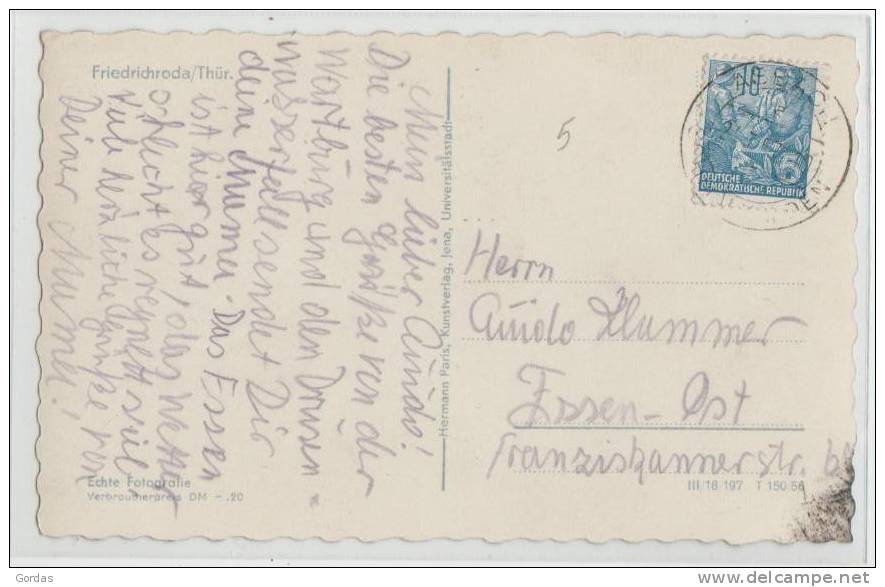 Friedrichroda/Thür.
Mein lieber Guido!
Die besten Grüße von der
Wartburg und den Drusen=
wasserfall sendet Dir
deine Mumei. Das Essen
ist hier gut, das Wetter
schlecht es regnet viel.
Viele herzliche Grüße von
Deiner Mumei!
Echte Fotografie
Verbraucherpreis DM -.20
Hermann Paris, Kunstverlag, Jena, Universitätsstadt
5
10
DEUTSCHE
DEMOKRATISCHE REPUBLIK
5
Herrn
Guido Klummer
Essen-Ost
Franziskannerstr. 6
III/18 197 T 150 56
Gordas
www.delcampe.net